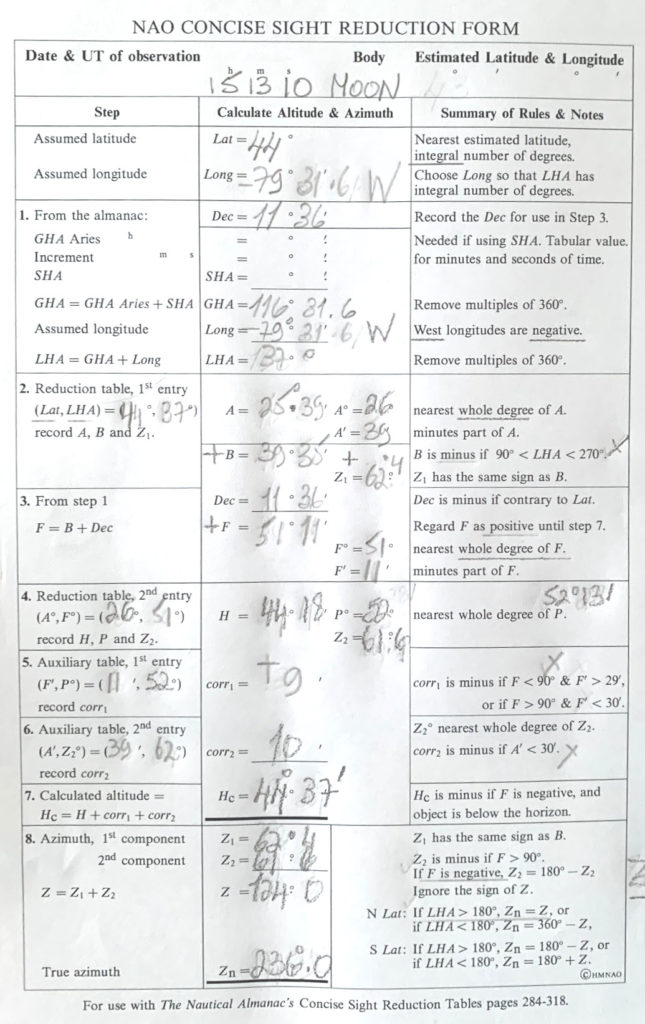 NAO CONCISE SIGHT REDUCTION FORM
Date & UT of observation Body Estimated Latitude & Longitude
h m s ° ′ ° ′
15 13 10 MOON
Step Calculate Altitude & Azimuth Summary of Rules & Notes
Assumed latitude Lat = 44 ° Nearest estimated latitude,
integral number of degrees.
Assumed longitude Long = -79° 31'.6 W Choose Long so that LHA has
integral number of degrees.
1. From the almanac: Dec = 11 ° 36′ Record the Dec for use in Step 3.
GHA Aries h = ° ′ Needed if using SHA. Tabular value.
Increment m s = ° ′ for minutes and seconds of time.
SHA SHA = ° ′
GHA = GHA Aries + SHA GHA = 116° 31.6 Remove multiples of 360°.
Assumed longitude Long = -79° 31'.6 W West longitudes are negative.
LHA = GHA + Long LHA = 37° 0 Remove multiples of 360°.
2. Reduction table, 1st entry
(Lat, LHA) = (44 °, 37°) A = 25° 39′ A° = 26 nearest whole degree of A.
record A, B and Z₁. A′ = 39 minutes part of A.
+B = 39° 35′ + B is minus if 90° < LHA < 270°. X
Z₁ = 62°.4 Z₁ has the same sign as B.
3. From step 1 Dec = 11 ° 36′ Dec is minus if contrary to Lat.
F = B + Dec +F = 51° 11′ Regard F as positive until step 7.
F° = 51° nearest whole degree of F.
F′ = 11′ minutes part of F.
4. Reduction table, 2nd entry 52°13'
(A°, F°) = (26°, 51°) H = 44° 18′ P° = 52° nearest whole degree of P.
record H, P and Z₂. Z₂ = 61.6
5. Auxiliary table, 1st entry X
(F′, P°) = (11 ′, 52°) corr₁ = +9 ′ corr₁ is minus if F < 90° & F′ > 29′,
record corr₁ or if F > 90° & F′ < 30′.
6. Auxiliary table, 2nd entry Z₂° nearest whole degree of Z₂.
(A′, Z₂°) = (39 ′, 62°) corr₂ = 10 ′ corr₂ is minus if A′ < 30′. X
record corr₂
7. Calculated altitude = Hc = 44° 37′ Hc is minus if F is negative, and
Hc = H + corr₁ + corr₂ object is below the horizon.
8. Azimuth, 1st component Z₁ = 62°.4 Z₁ has the same sign as B.
2nd component Z₂ = 61°.6 Z₂ is minus if F > 90°.
If F is negative, Z₂ = 180° − Z₂
Z = Z₁ + Z₂ Z = 124°.0 Ignore the sign of Z.
N Lat: If LHA > 180°, Zn = Z, or
if LHA < 180°, Zn = 360° − Z,
S Lat: If LHA > 180°, Zn = 180° − Z, or
if LHA < 180°, Zn = 180° + Z.
True azimuth Zn = 236°.0
©HMNAO
For use with The Nautical Almanac's Concise Sight Reduction Tables pages 284-318.